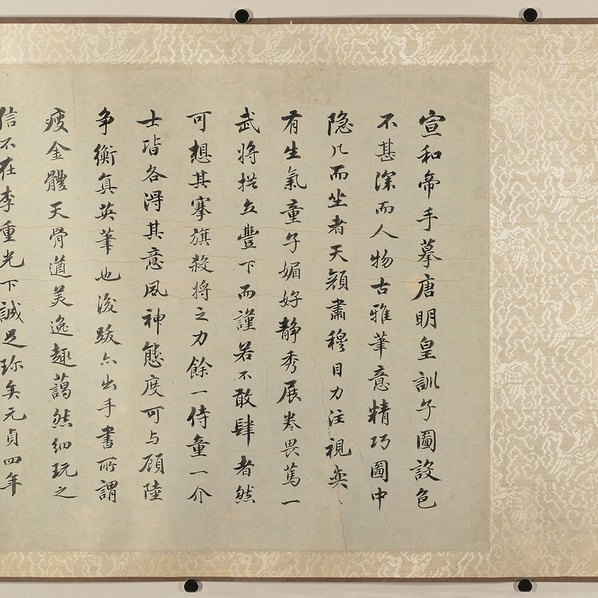 宣和帝手摹唐明皇訓子圖設色
不甚深而人物古雅筆意精巧圖中
隐几而坐者天顔肅穆目力注視奕奕
有生氣童子媚好静秀展卷畏篤一
武將拱立豐下而謹若不敢肆者然
可想其搴旗殺將之力餘一侍童一介
士皆各得其意風神態度可与顧陸
争衡真英筆也後跋亦出手書所謂
瘦金體天骨遒美逸趣藹然細玩之
信不在李重光下誠足珎矣元貞四年